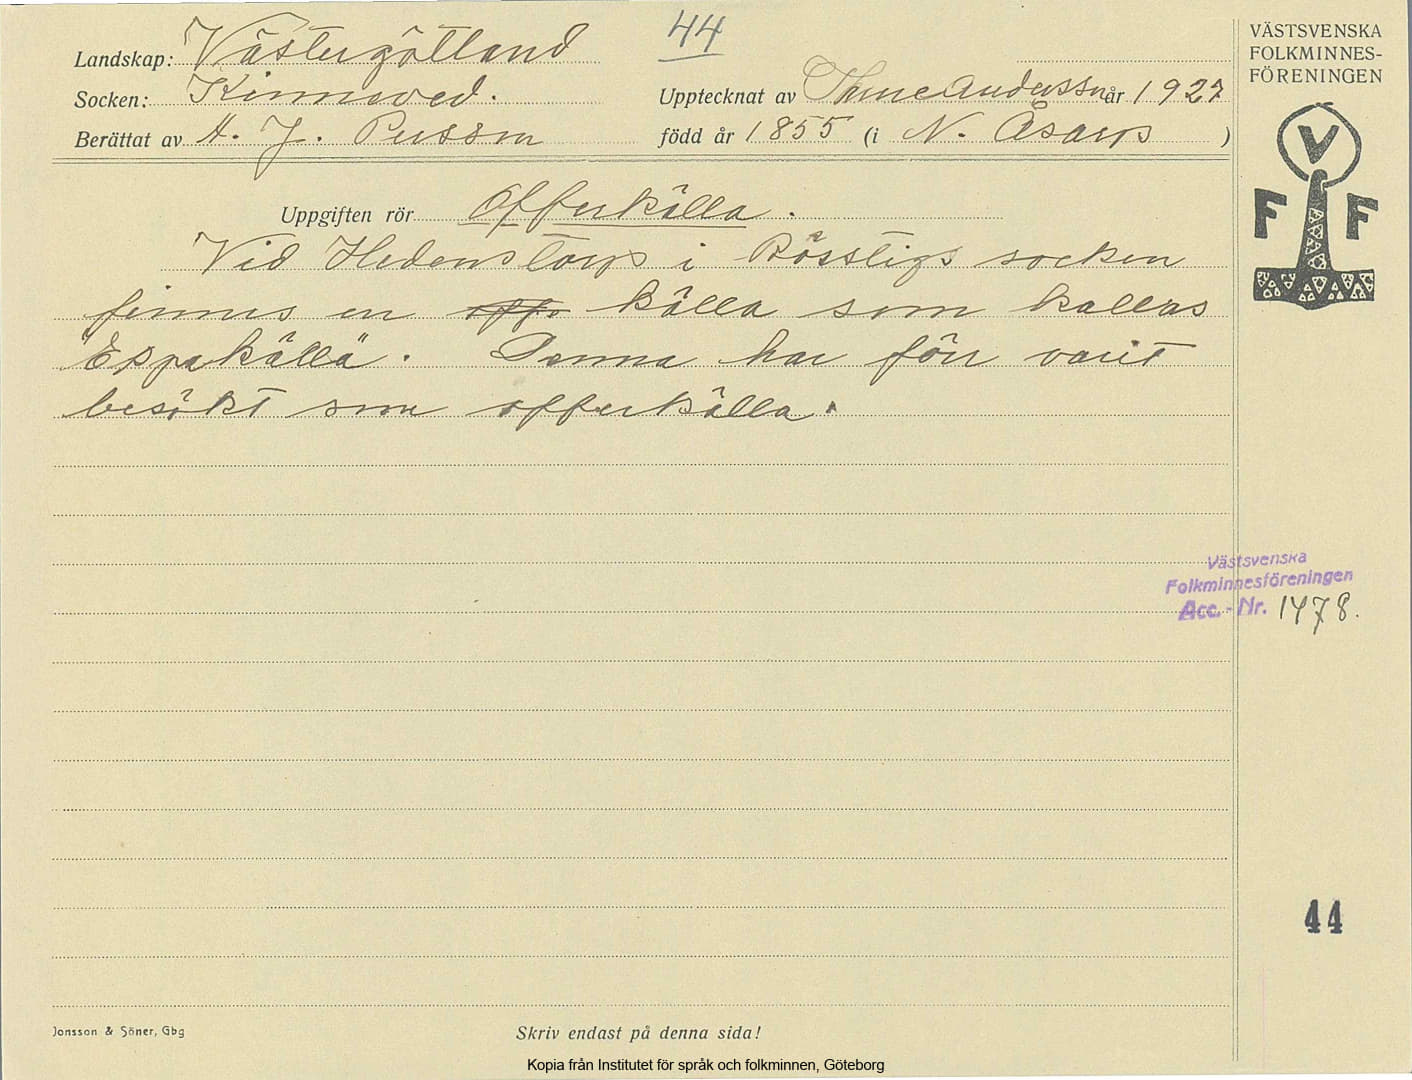 44
Landskap: Västergötland
Socken: Kinneved.
Upptecknat av Thure Andersson år 1927
Berättat av A. J. Persson född år 1855 (i N. Åsarps )
Uppgiften rör Offerkälla.
Vid Hedenstorps i socken
finnes en källa som kallas
"Espakälla". Denna har förr varit
besökt som offerkälla.
VÄSTSVENSKA
FOLKMINNES-
FÖRENINGEN
V
F F
Västsvenska
Folkminnesföreningen
Acc. - Nr. 1478.
44
Jonsson & Söner, Gbg
Skriv endast på denna sida!
Kopia från Institutet för språk och folkminnen, Göteborg